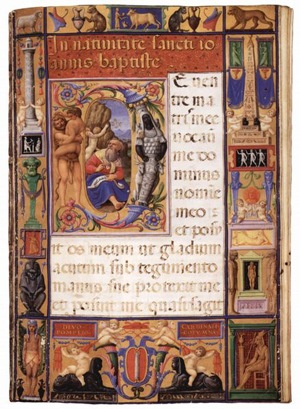 In nativitate sancti io
annis baptiste
E ven
tre ma
tris mee
vocavit
me do
minus
nomine
meo: 
et posu
it os meum ut gladium
acutum sub tegumento
manus sue protexit me
et posuit me quasi sagit
DIVO